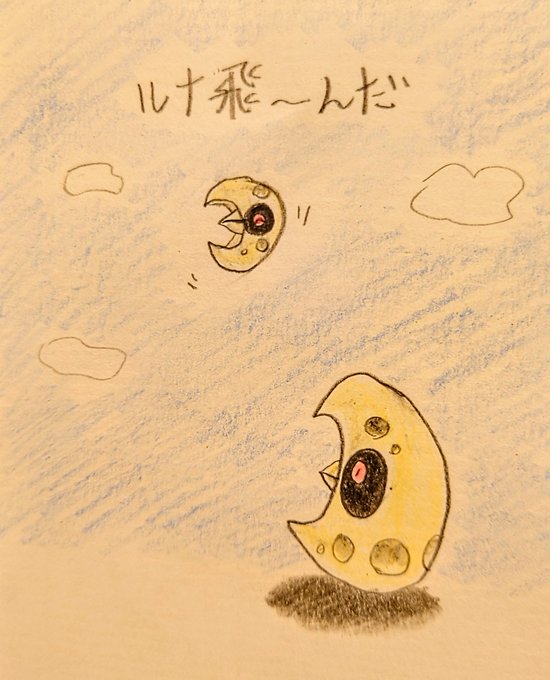 ルナ飛〜んだ